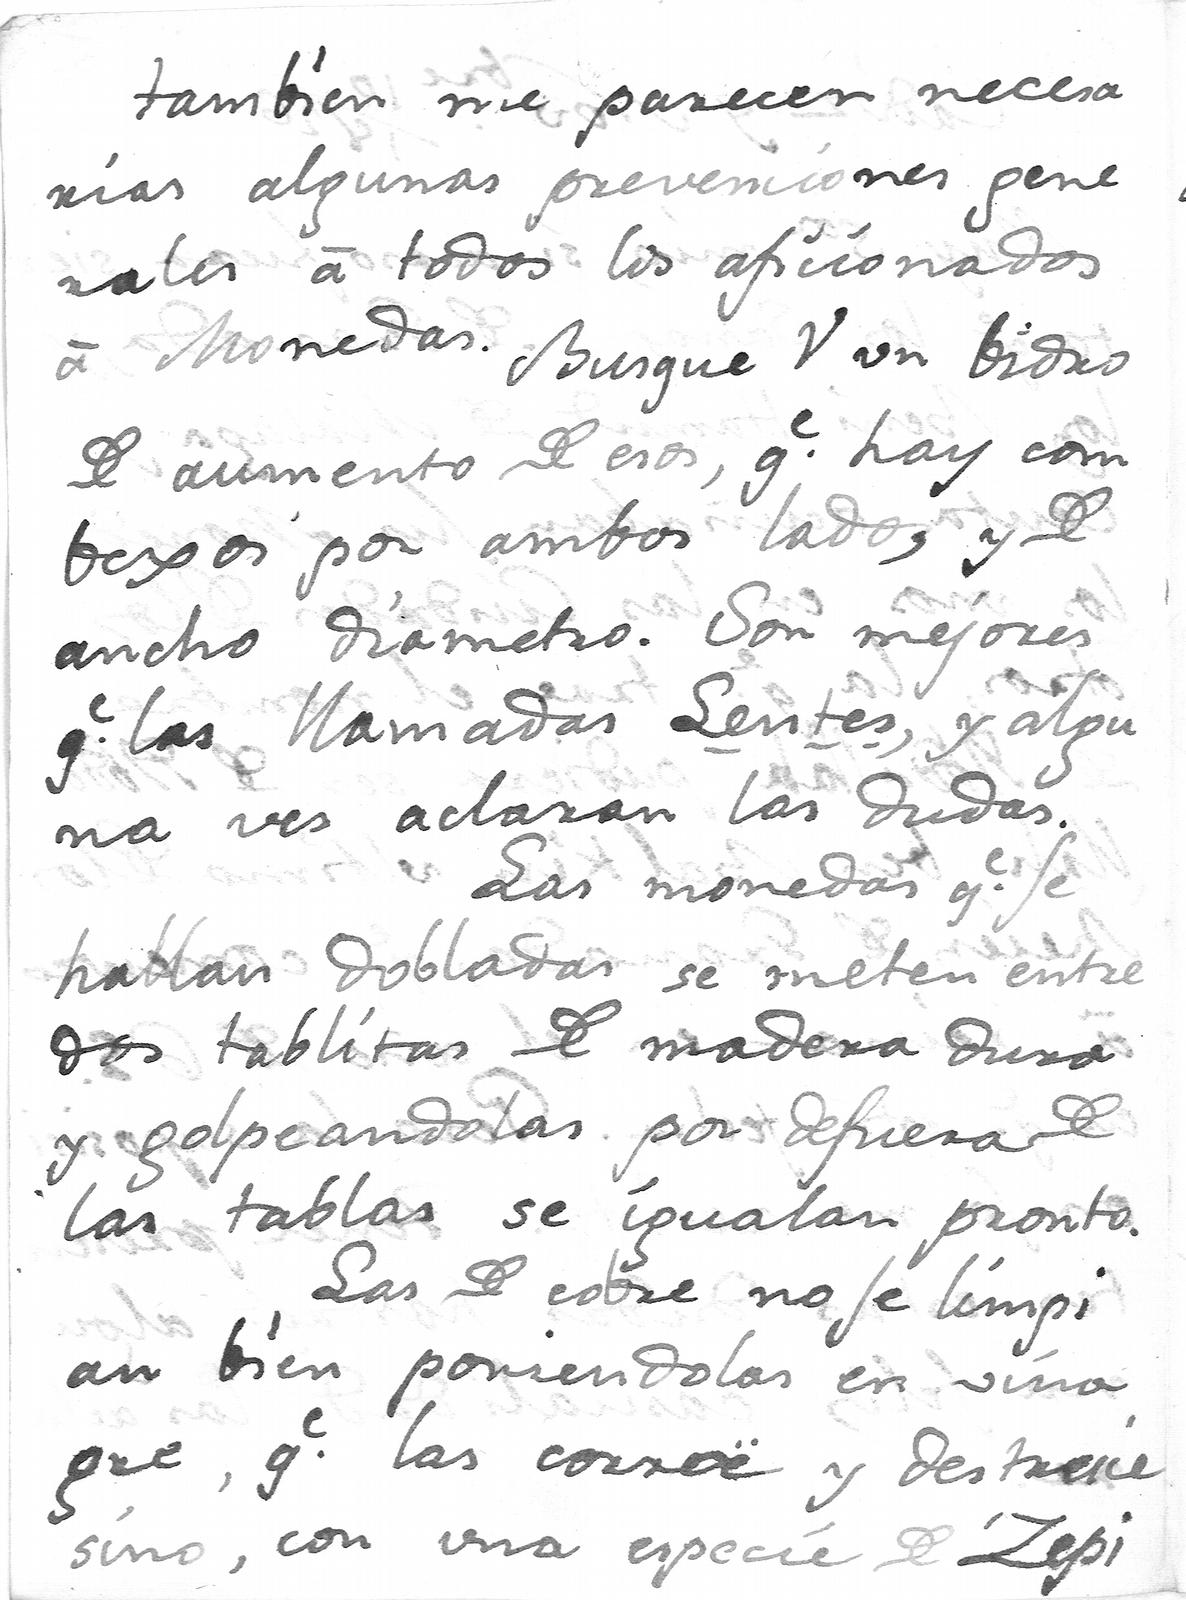 tambien me parecen necesa
rias algunas prevenciones gene
rales ā todos los aficionados
ā Monedas. Busque V un bidro
De aumento De esos, qᵉ. hay com
bexos por ambos lados, y De
ancho diametro. Son mejores
qᵉ. las llamadas Lentes, y algu
na ves aclaran las dudas.
Las monedas qᵉ. se
hallan dobladas se meten entre
dos tablitas De madera dura
y golpeandolas por defuera De
las tablas se igualan pronto.
Las De cobre no se limpi
an bien poniendolas en vina
gre, qᵉ. las corroë y destruie
sino, con una especie De Zepi